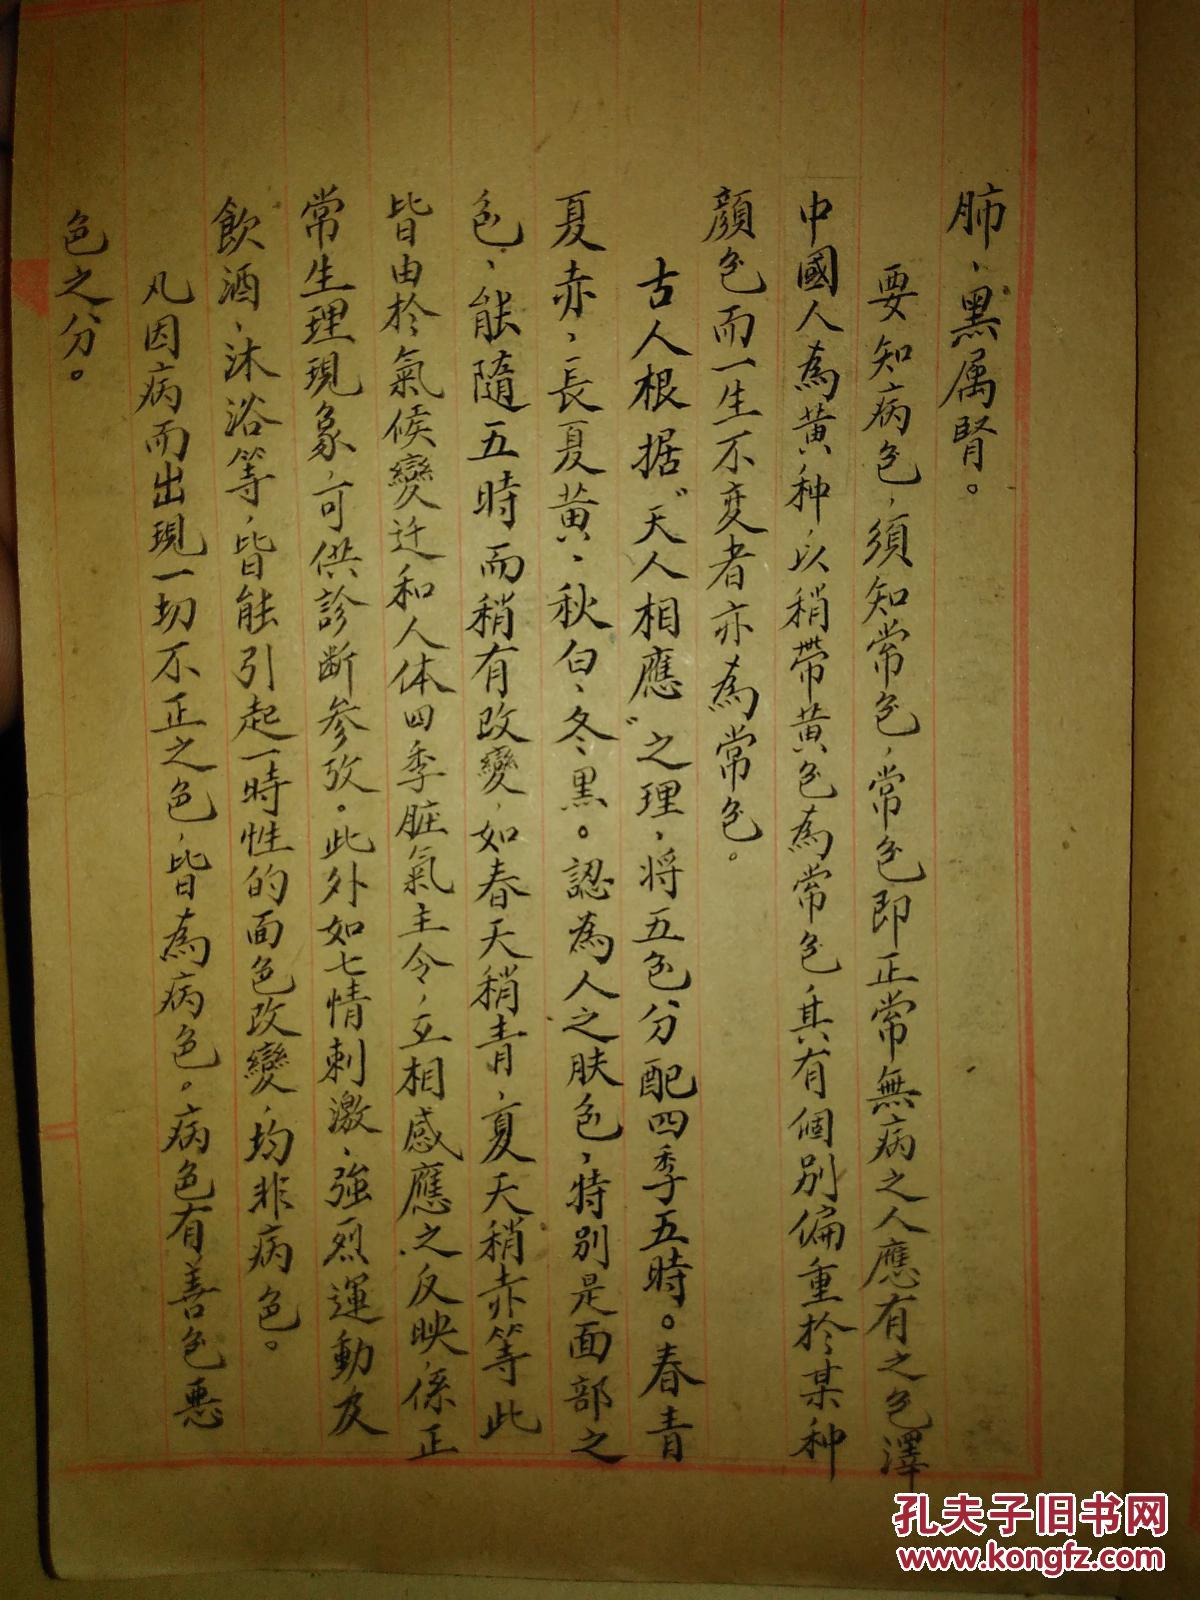 肺、黑属腎。
要知病色，須知常色，常色即正常無病之人應有之色澤
中國人為黃种，以稍帶黃色為常色，其有個別偏重於某种
顏色而一生不变者亦為常色。
古人根据“天人相應”之理，将五色分配四季五時。春青
夏赤、長夏黃、秋白、冬黑。認為人之肤色，特别是面部之
色，能隨五時而稍有改變，如春天稍青，夏天稍赤等此
皆由於氣候變迁和人体四季脏氣主令，互相感應之反映，係正
常生理現象，可供診断参攷。此外如七情刺激、強烈運動及
飲酒、沐浴等，皆能引起一時性的面色改變，均非病色。
凡因病而出現一切不正之色，皆為病色。病色有善色惡
色之分。
孔夫子旧书网
www.kongfz.com